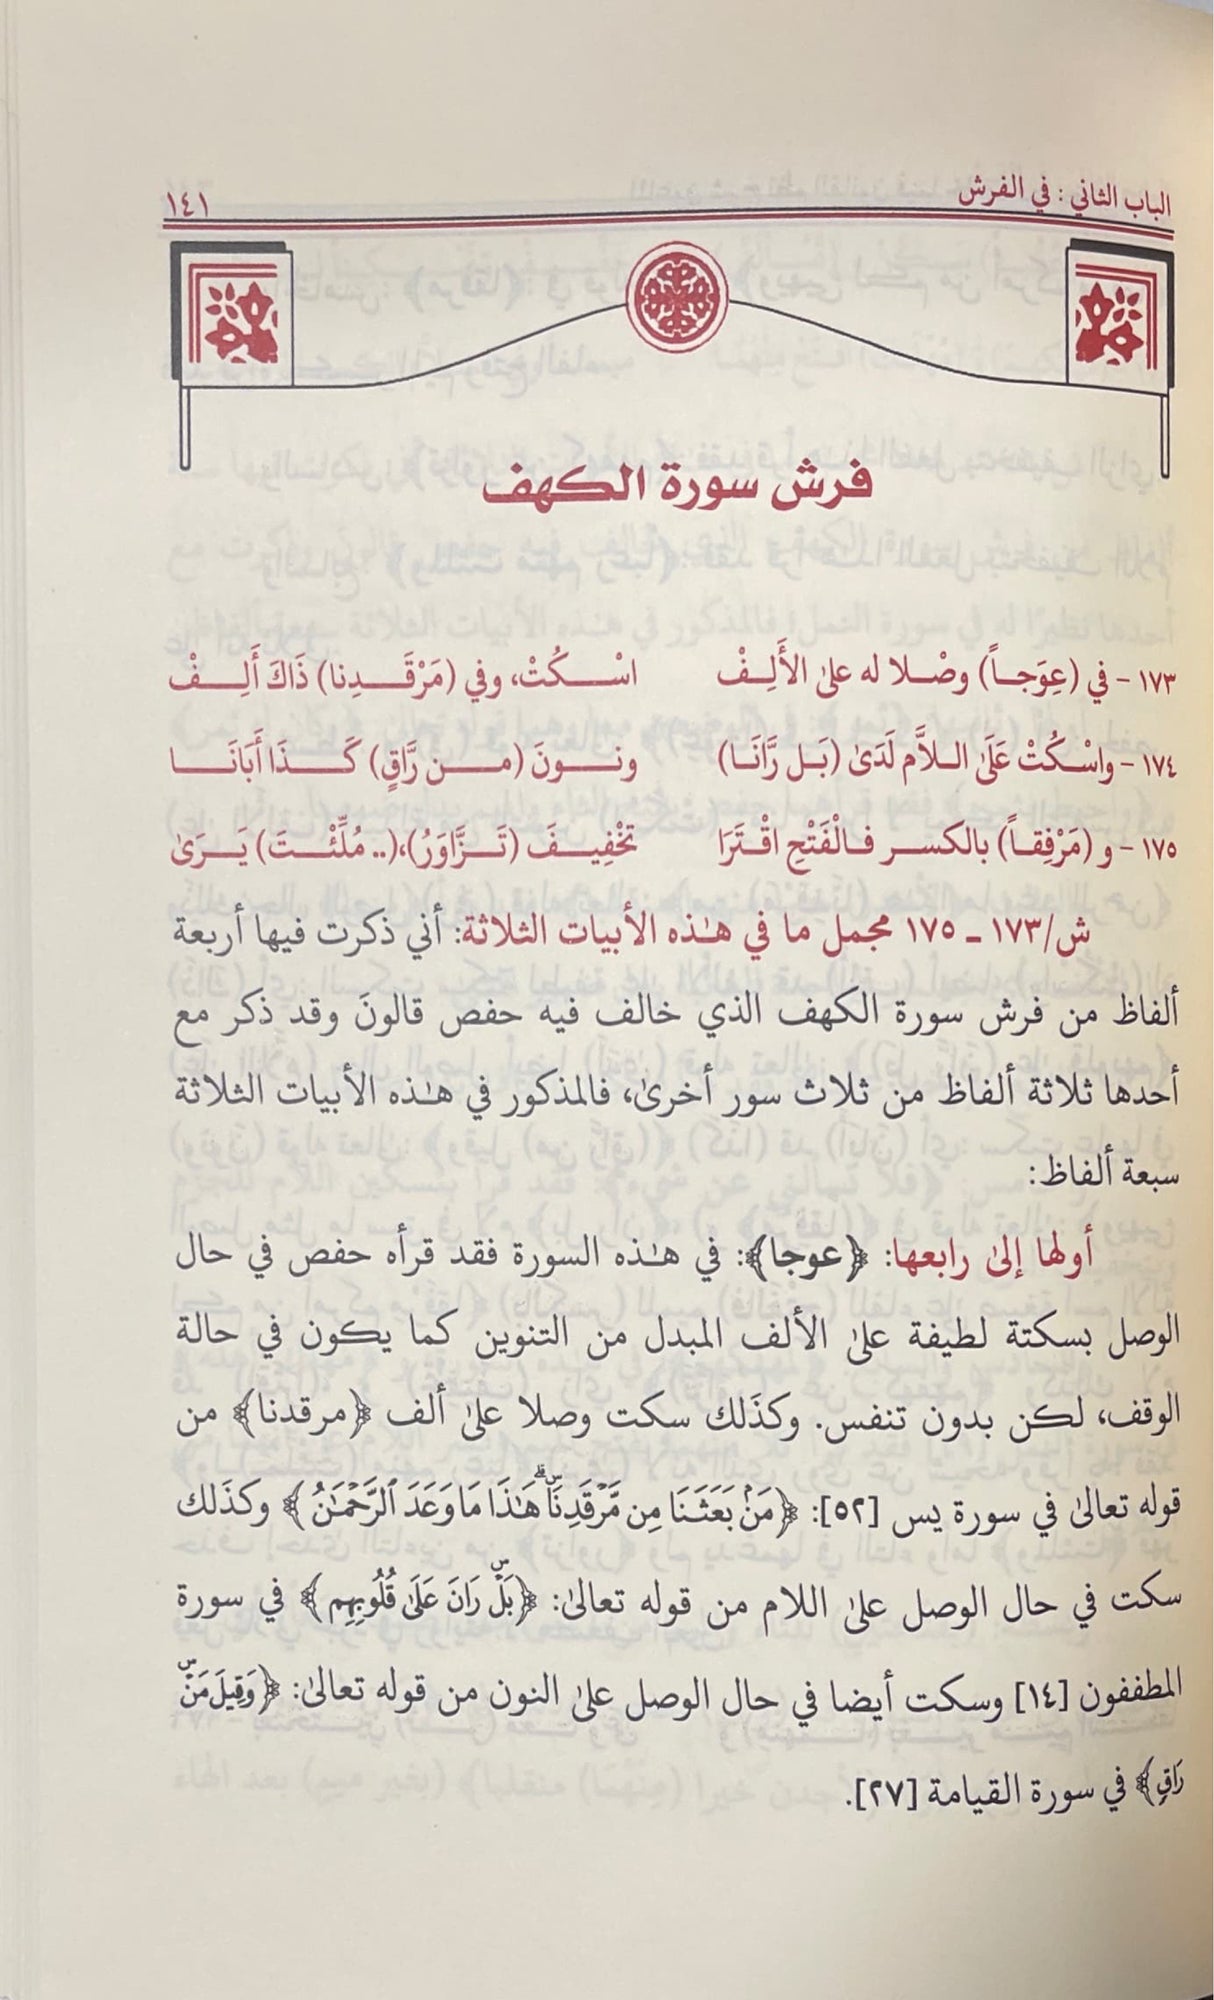 الباب الثاني: في الفرش ١٤١
فرش سورة الكهف
١٧٣ - في (عِوَجـاً) وصْـلا له على الأَلِـفْ اسْـــكُتْ، وفي (مَرْقَـــدِنا) ذَاكَ أَلِـــفْ
١٧٤ - واسْـكُتْ عَلَى الـلاَّم لَدَى (بَـل رَّانَـا) ونـــونَ (مـــن رَّاقٍ) كَـــذَا أَبَانَـــا
١٧٥ - و (مَرْفِقـاً) بالكسـر فـالْفَتْحِ اقْـتَرَا تخْفِيـفَ (تَـزَّاوَرُ)،(.. مُلِّئْـتَ) يَـرَىٰ
ش/١٧٣ ـ ١٧٥ مجمل ما في هـٰذه الأبيات الثلاثة: أني ذكرت فيها أربعة
ألفاظ من فرش سورة الكهف الذي خالف فيه حفص قالونَ وقد ذكر مع
أحدها ثلاثة ألفاظ من ثلاث سور أخرىٰ، فالمذكور في هـٰذه الأبيات الثلاثة
سبعة ألفاظ:
أولها إلىٰ رابعها: ﴿عوجا﴾: في هـٰذه السورة فقد قرأه حفص في حال
الوصل بسكتة لطيفة علىٰ الألف المبدل من التنوين كما يكون في حالة
الوقف، لكن بدون تنفس. وكذَلك سكت وصلا علىٰ ألف ﴿مرقدنا﴾ من
قوله تعالىٰ في سورة يس [٥٢]: ﴿مَنۢ بَعَثَنَا مِن مَّرْقَدِنَاۜۗ هَـٰذَا مَا وَعَدَ ٱلرَّحْمَـٰنُ﴾ وكذَلك
سكت في حال الوصل علىٰ اللام من قوله تعالىٰ: ﴿بَلْۜ رَانَ عَلَىٰ قُلُوبِهِم﴾ في سورة
المطففون [١٤] وسكت أيضا في حال الوصل علىٰ النون من قوله تعالىٰ: ﴿وَقِيلَ مَنْۜ
رَاقٍ﴾ في سورة القيامة [٢٧].